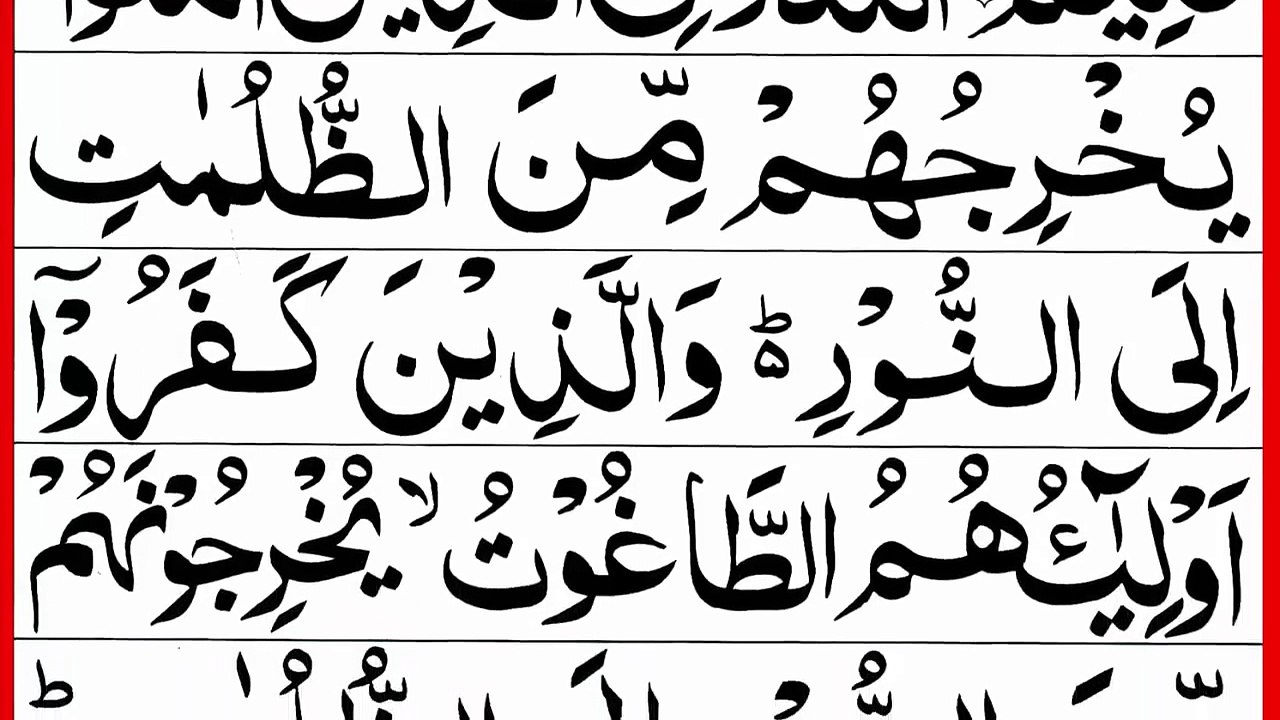 يُخْرِجُهُمْ مِّنَ الظُّلُمٰتِ
اِلَى النُّوْرِ ؕ وَالَّذِيْنَ كَفَرُوْۤا
اَوْلِيٰٓئُهُمُ الطَّاغُوْتُ ۙ يُخْرِجُوْنَهُمْ